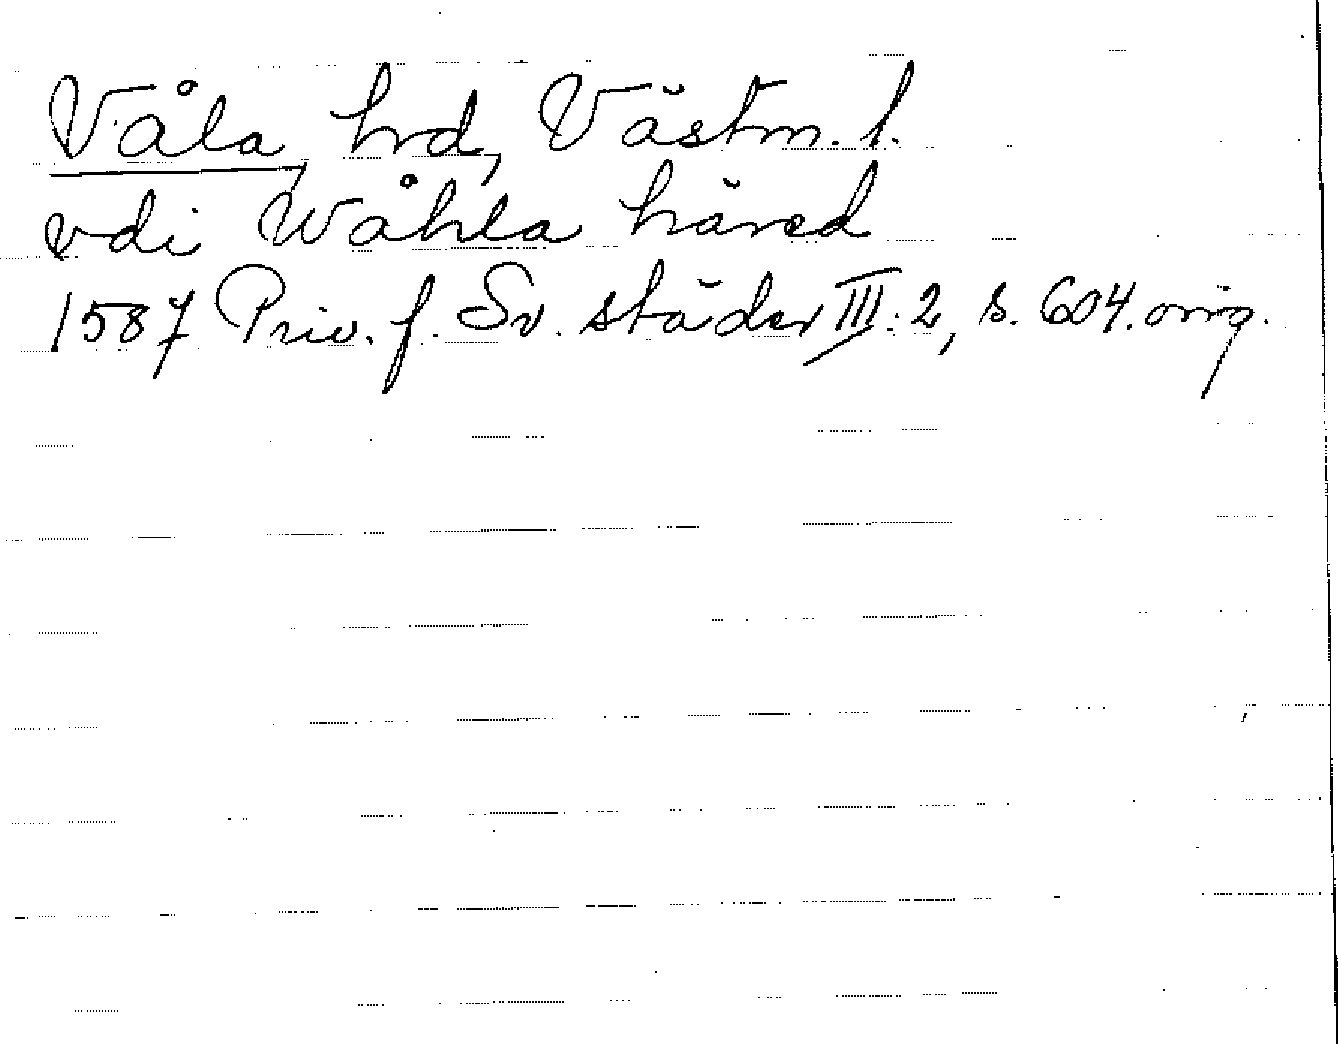 Våla hrd, Västm. l.
vdi Wåhla häred
1587 Priv. f. Sv. städer III:2, s. 604. orig.